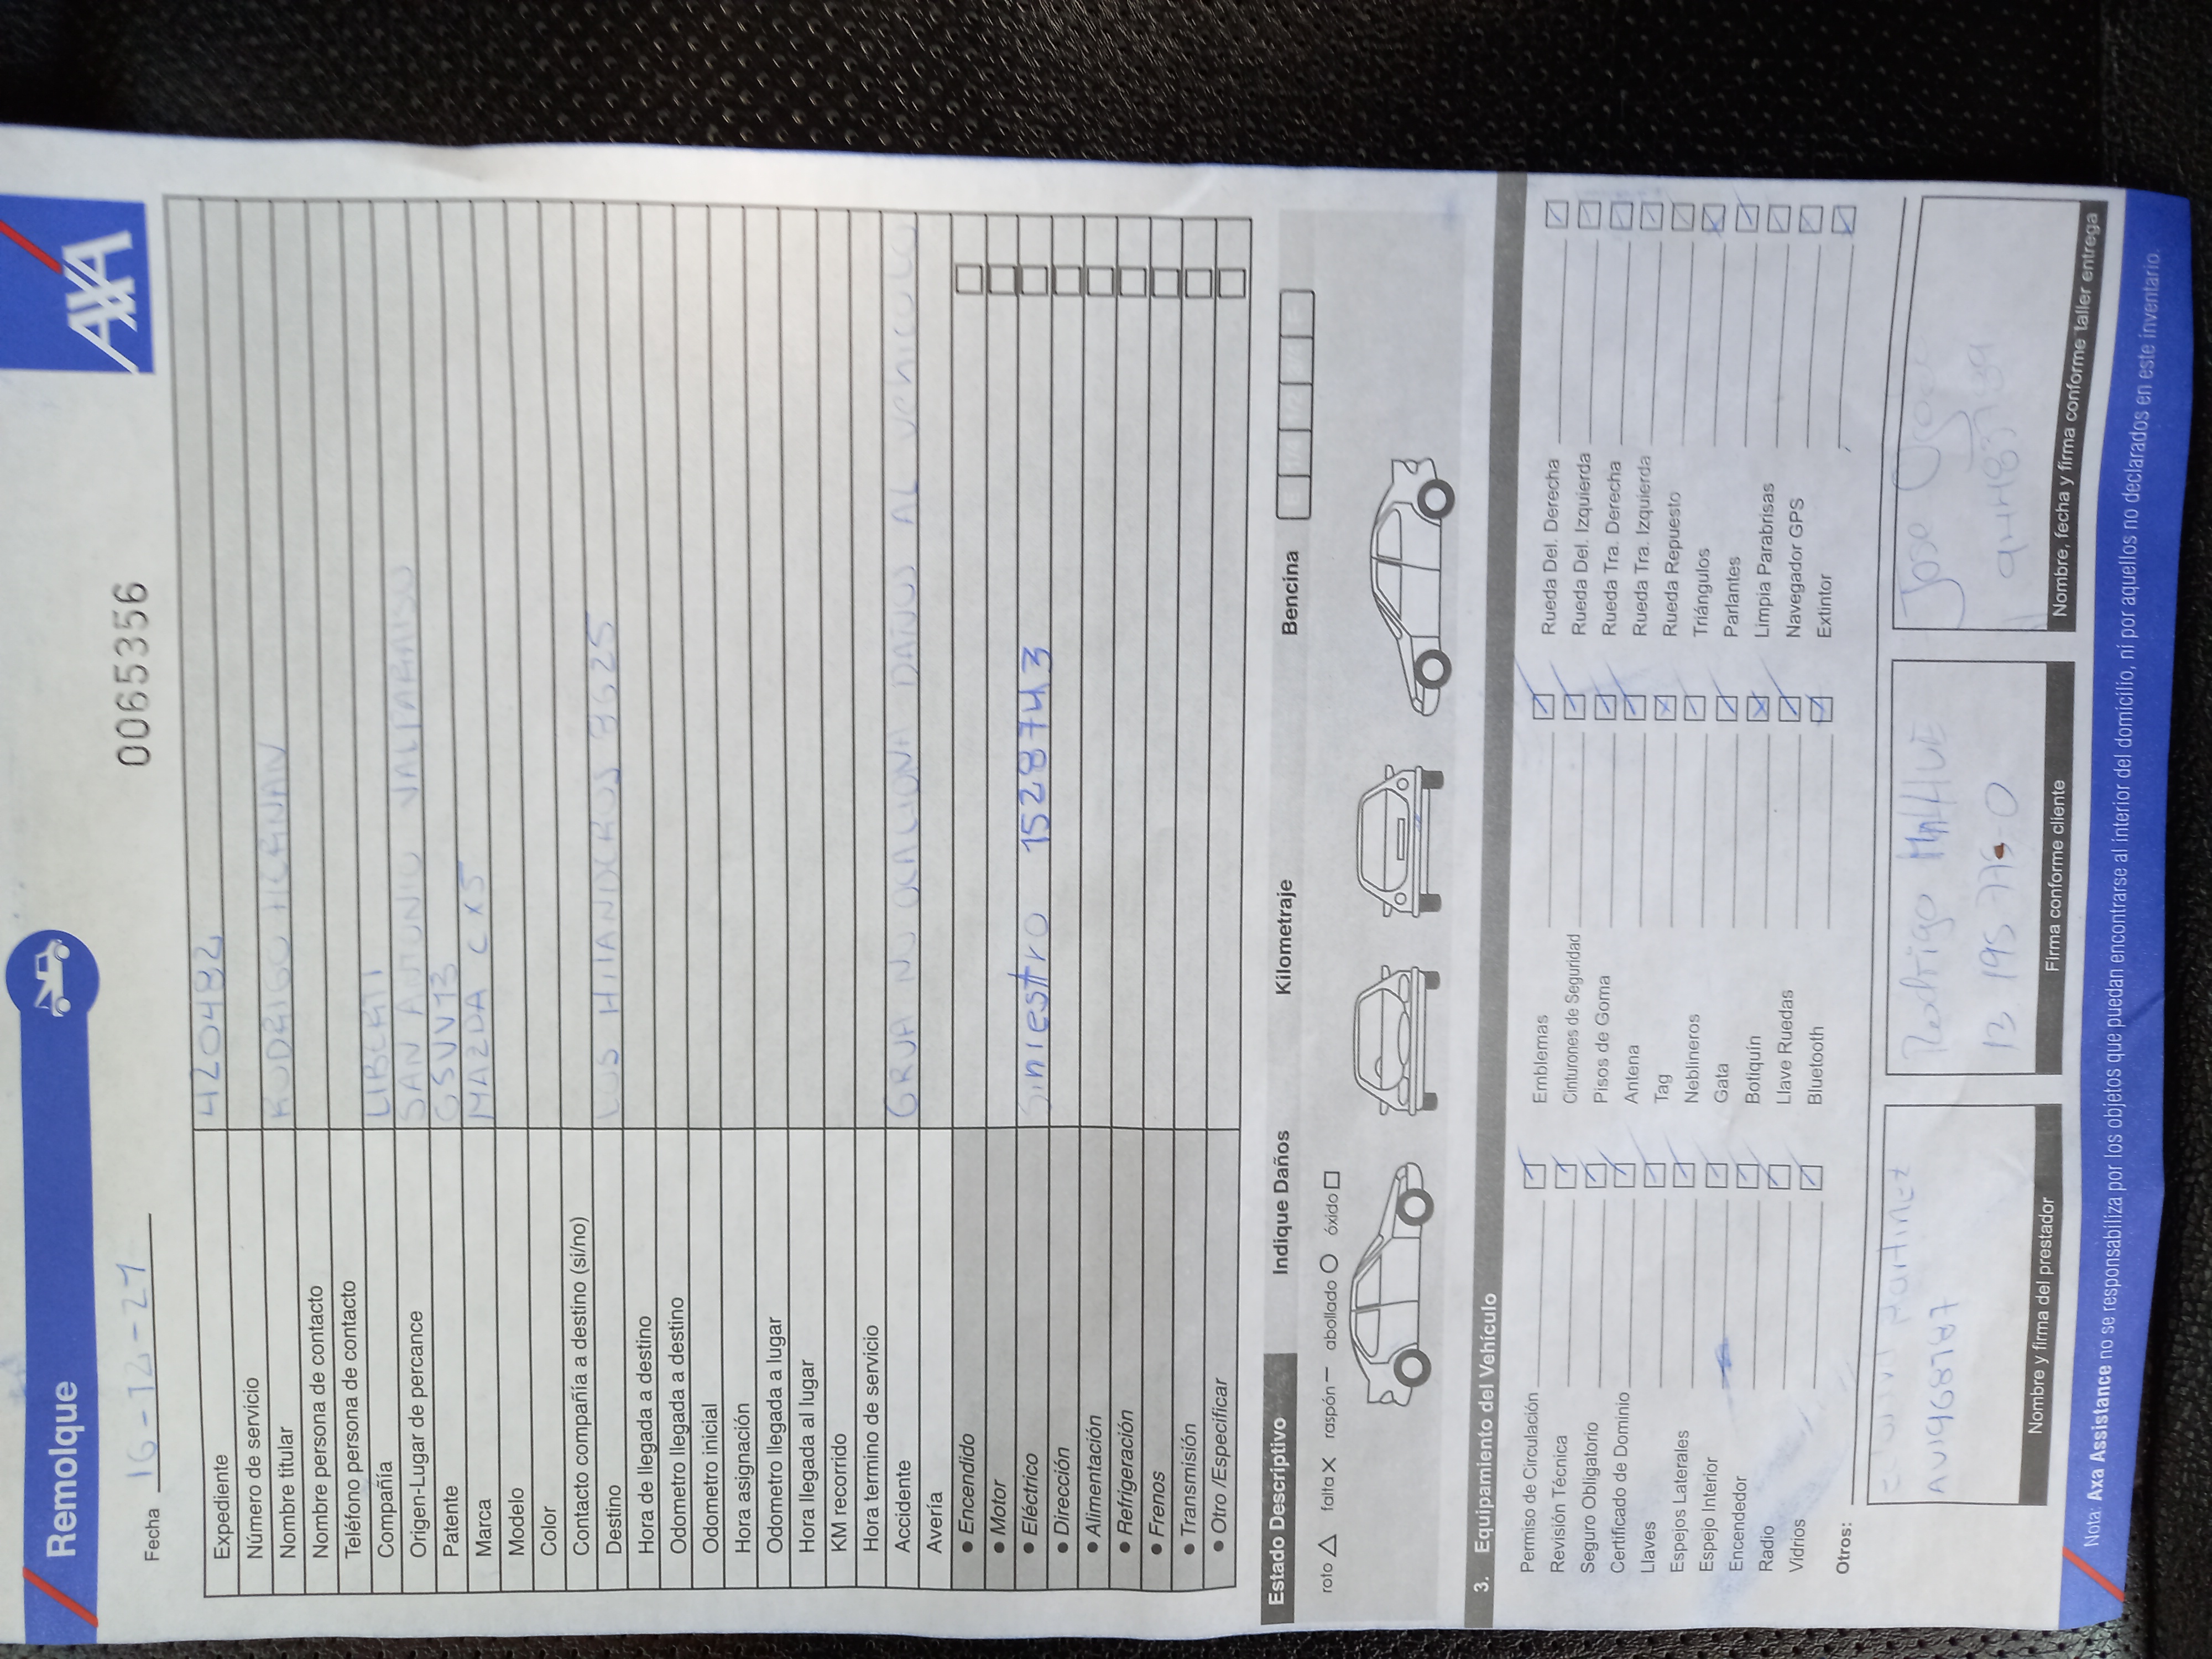 Remolque
AXA
Fecha 16-12-21
0065356
Expediente 4220482
Número de servicio
Nombre titular RODRIGO
Nombre persona de contacto
Teléfono persona de contacto
Compañía LIBERTI
Origen-Lugar de percance SAN ANTONIO VALPARAISO
Patente GSVV13
Marca MAZDA CX5
Modelo
Color
Contacto compañía a destino (si/no)
Destino LOS HILANDEROS 8625
Hora de llegada a destino
Odometro llegada a destino
Odometro inicial
Hora asignación
Odometro llegada a lugar
Hora llegada al lugar
KM recorrido
Hora termino de servicio
Accidente GRUA NO OCACIONA DAÑOS AL VEHICULO
Avería
• Encendido
• Motor
• Eléctrico Siniestro 15287443
• Dirección
• Alimentación
• Refrigeración
• Frenos
• Transmisión
• Otro /Especificar
Estado Descriptivo Indique Daños Kilometraje Bencina
roto falta raspón abollado óxido
3. Equipamiento del Vehículo
Permiso de Circulación
Revisión Técnica
Seguro Obligatorio
Certificado de Dominio
Llaves
Espejos Laterales
Espejo Interior
Encendedor
Radio
Vidrios
Otros:
Emblemas
Cinturones de Seguridad
Pisos de Goma
Antena
Tag
Neblineros
Gata
Botiquín
Llave Ruedas
Bluetooth
Rueda Del. Derecha
Rueda Del. Izquierda
Rueda Tra. Derecha
Rueda Tra. Izquierda
Rueda Repuesto
Triángulos
Parlantes
Limpia Parabrisas
Navegador GPS
Extintor
Martinez
Nombre y firma del prestador
Rodrigo
Firma conforme cliente
Jose
Nombre, fecha y firma conforme taller entrega
Nota: Axa Assistance no se responsabiliza por los objetos que puedan encontrarse al interior del domicilio, ni por aquellos no declarados en este inventario.